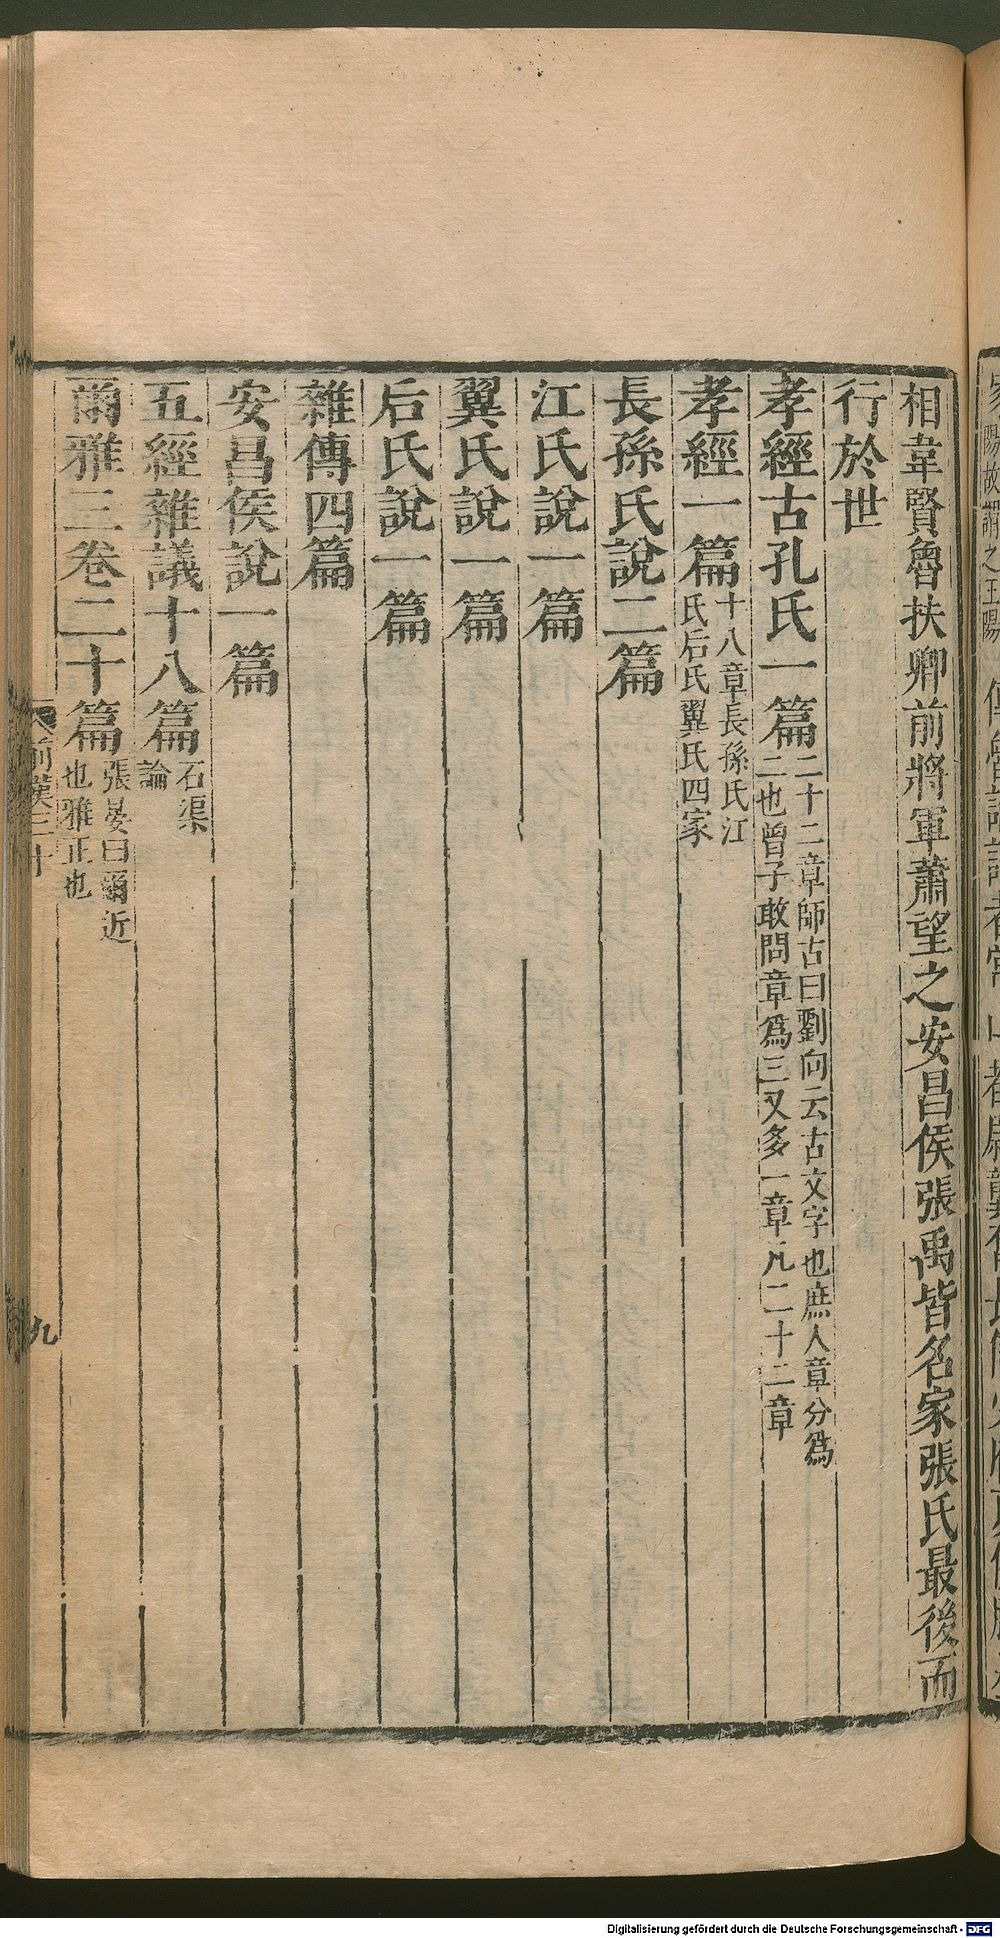 相韋賢魯扶卿前將軍蕭望之安昌侯張禹皆名家張氏最後而
行於世
孝經古孔氏一篇二十二章師古曰劉向云古文字也庶人章分爲
二也曾子敢問章爲三又多一章凡二十二章
孝經一篇十八章長孫氏江
氏后氏翼氏四家
長孫氏說二篇
江氏說一篇
翼氏說一篇
后氏說一篇
雜傳四篇
安昌侯說一篇
五經雜議十八篇石渠
論
爾雅三卷二十篇張晏曰爾近
也雅正也
前漢三十
九
Digitalisierung gefördert durch die Deutsche Forschungsgemeinschaft - DFG